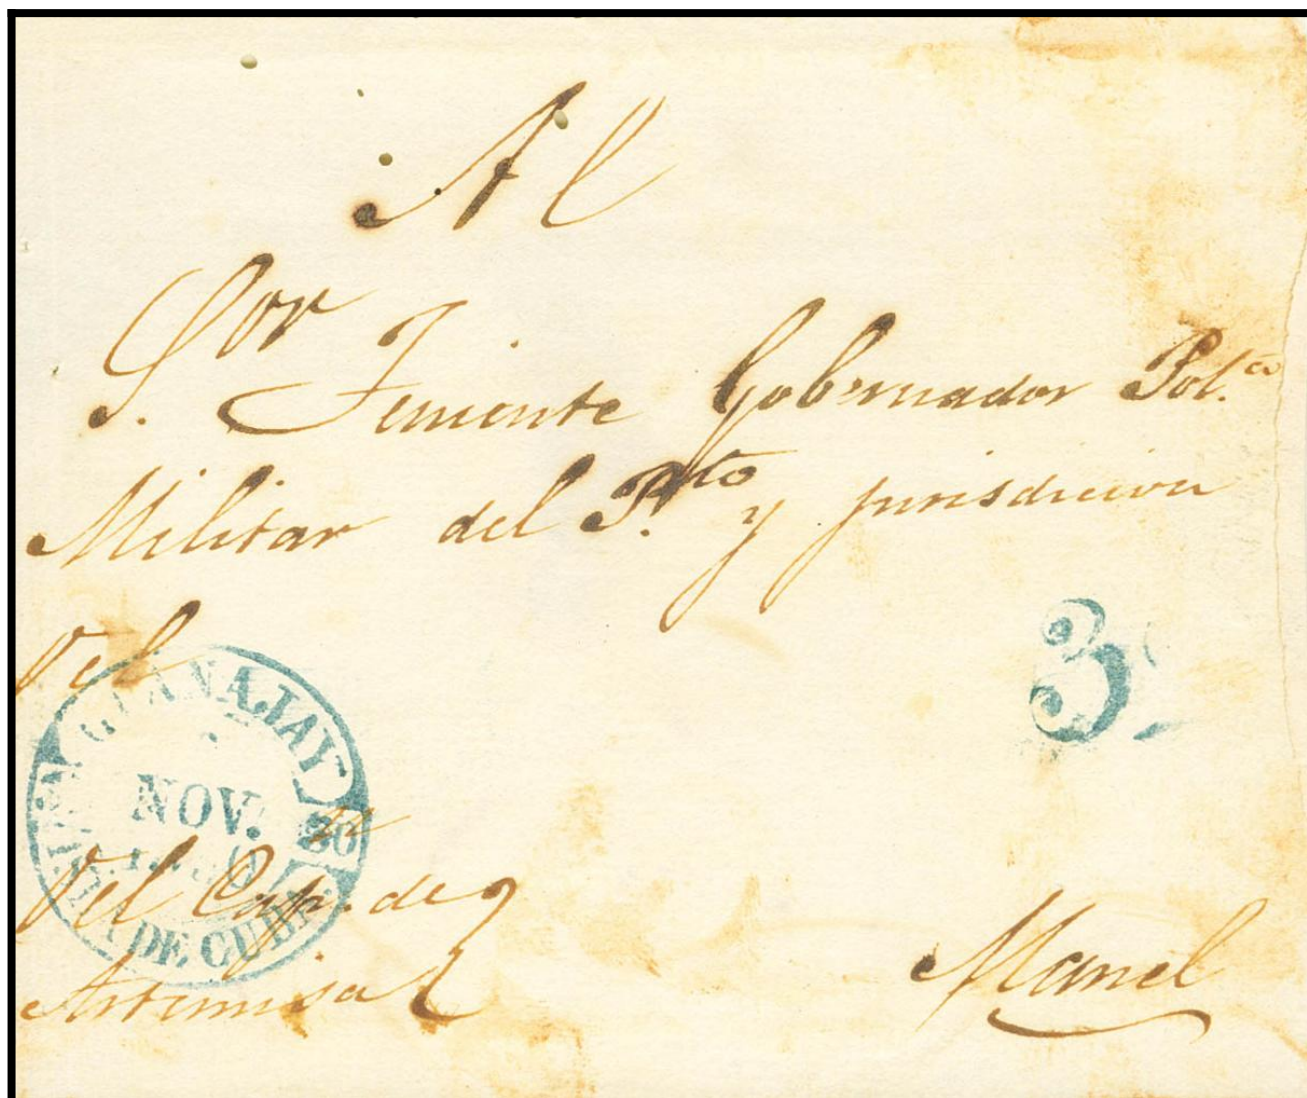 Al
Sor
S. Teniente Gobernador Pol.co
Militar del P.to y jurisdiccion
Del
GUANAJAY
NOV.
30
ISLA DE CUBA
3
Del Cap.n de
Artemisa
Mariel